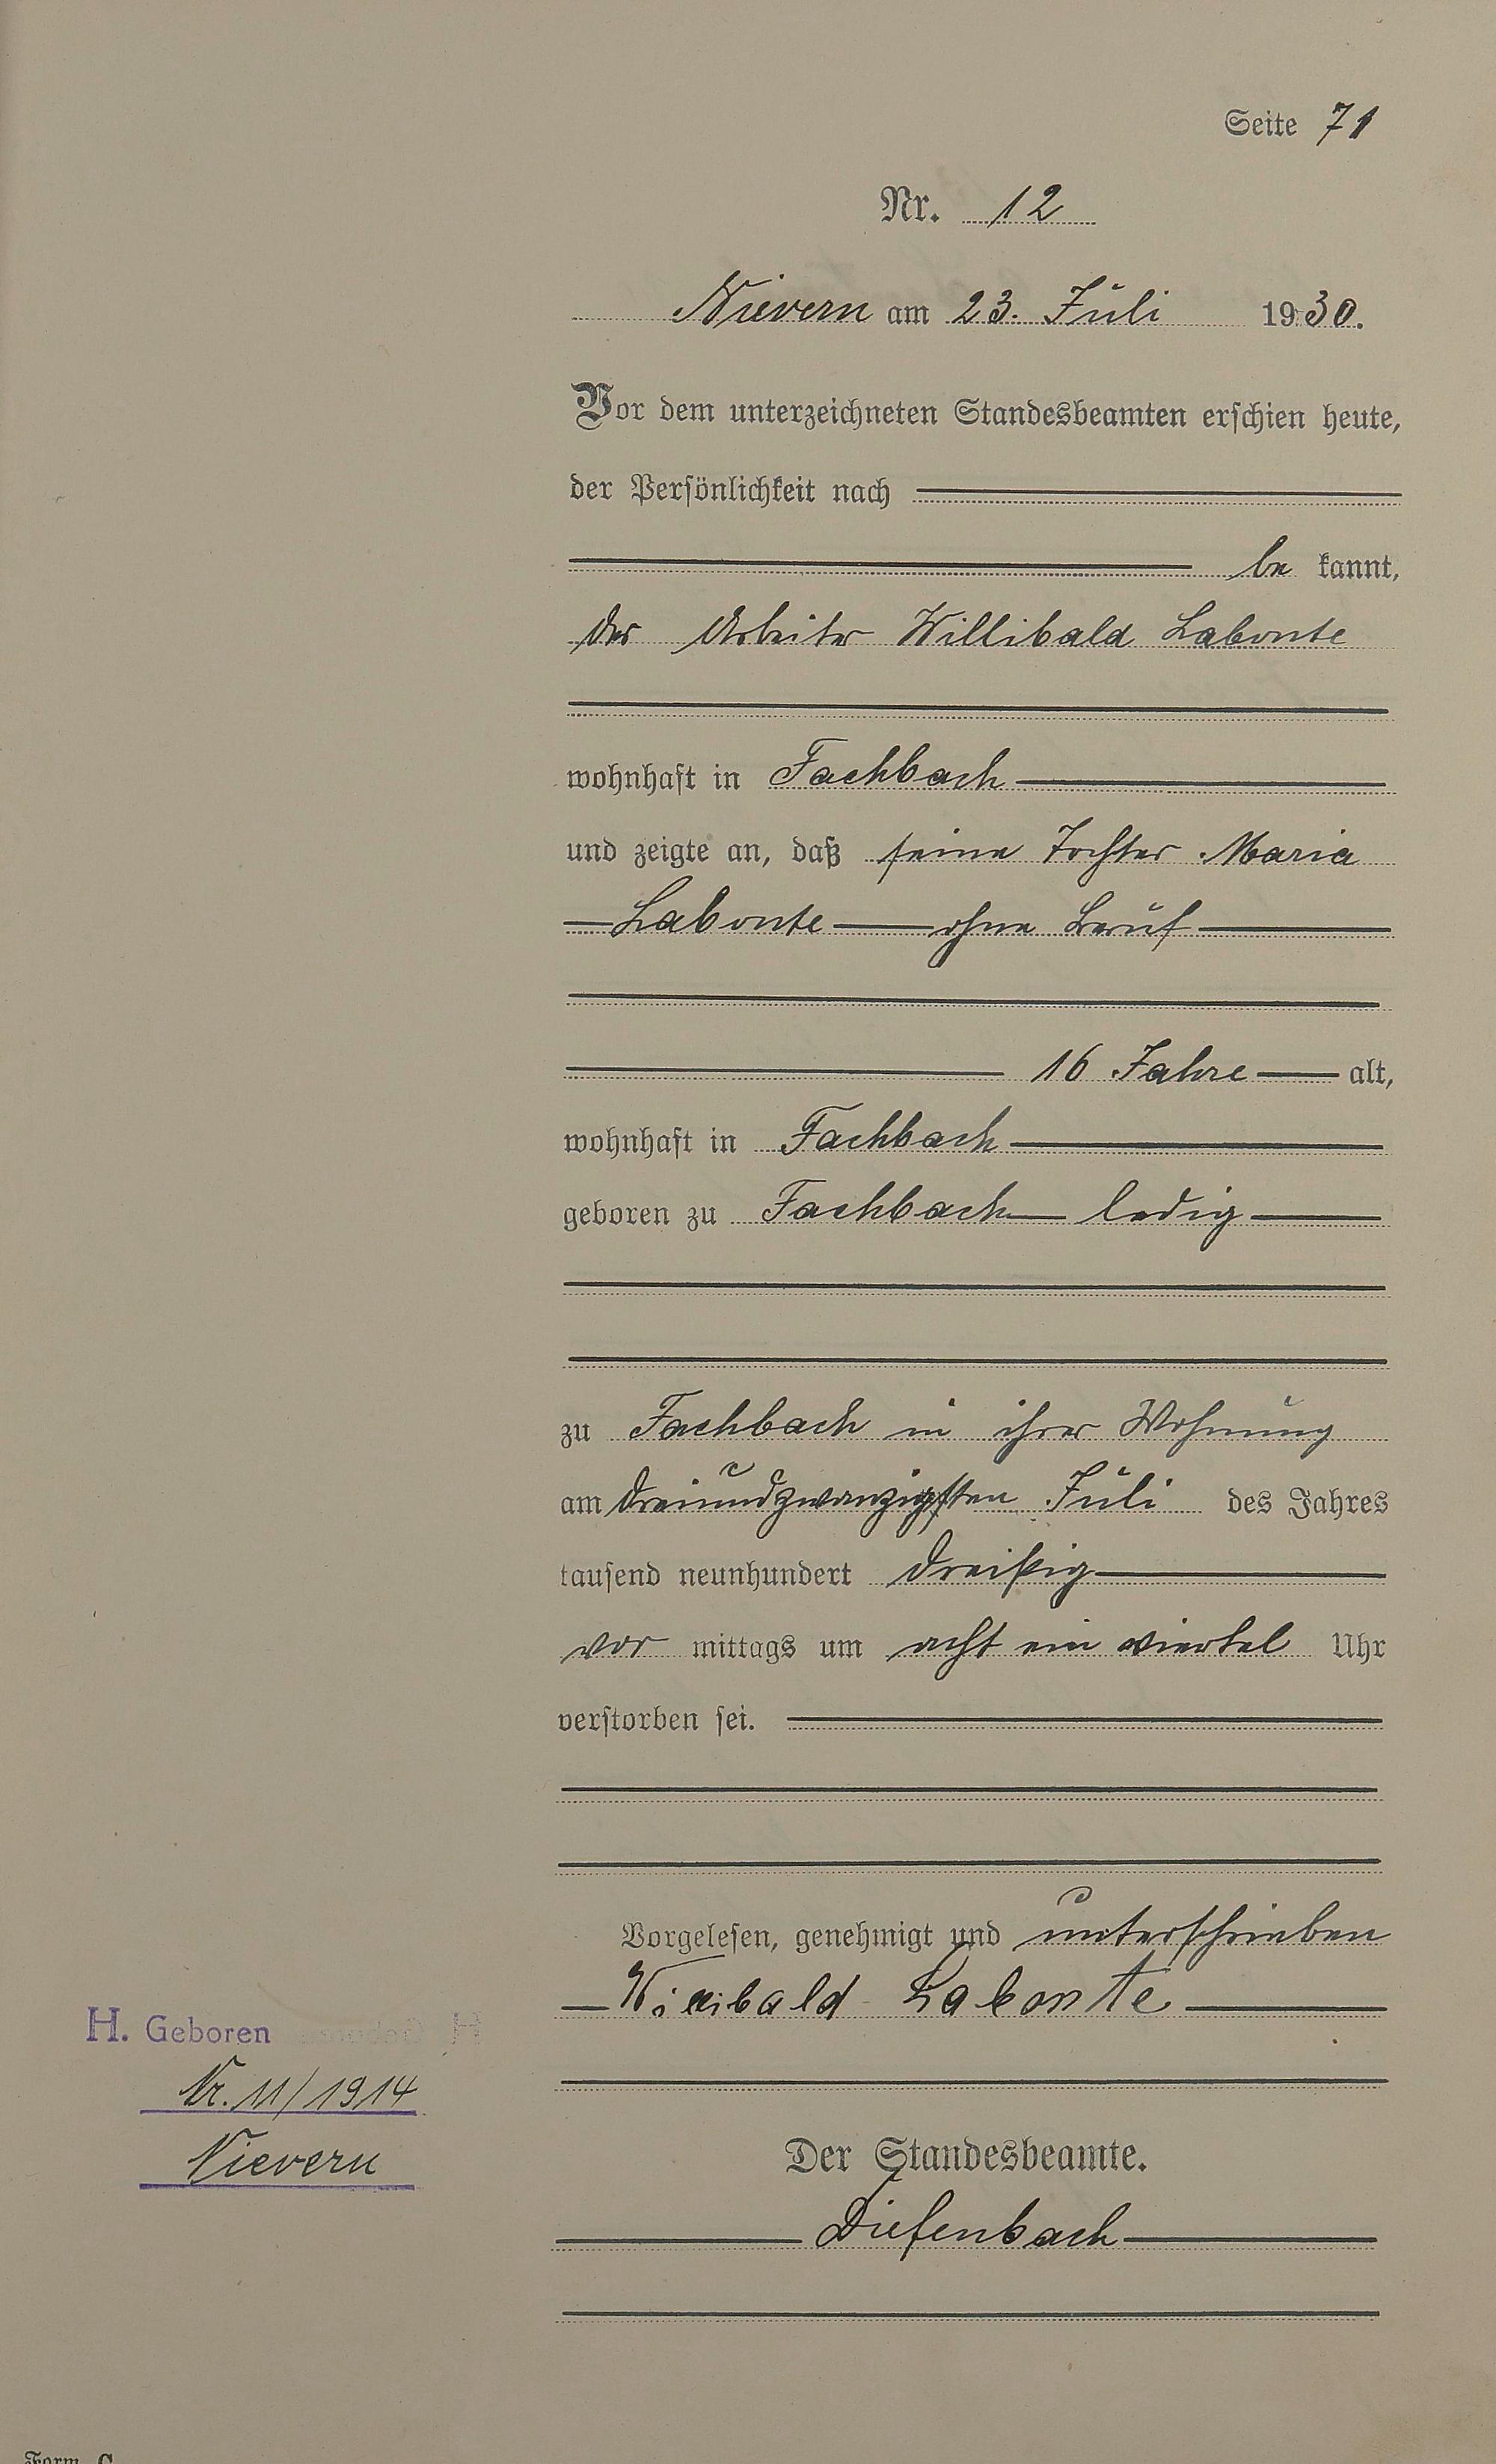 Seite 71
Nr. 12
Nievern am 23. Juli 1930.
Vor dem unterzeichneten Standesbeamten erschien heute,
der Persönlichkeit nach
be kannt,
der Arbeiter Willibald Labonte
wohnhaft in Fachbach
und zeigte an, daß seine Tochter Maria
Labonte ohne Beruf
16 Jahre alt,
wohnhaft in Fachbach
geboren zu Fachbach ledig
zu Fachbach in ihrer Wohnung
am dreiundzwanzigsten Juli des Jahres
tausend neunhundert dreißig
vor mittags um acht ein viertel Uhr
verstorben sei.
Vorgelesen, genehmigt und unterschrieben
Willibald Labonte
H. Geboren
Nr. 11/1914
Nievern
Der Standesbeamte.
Diefenbach
Form. C